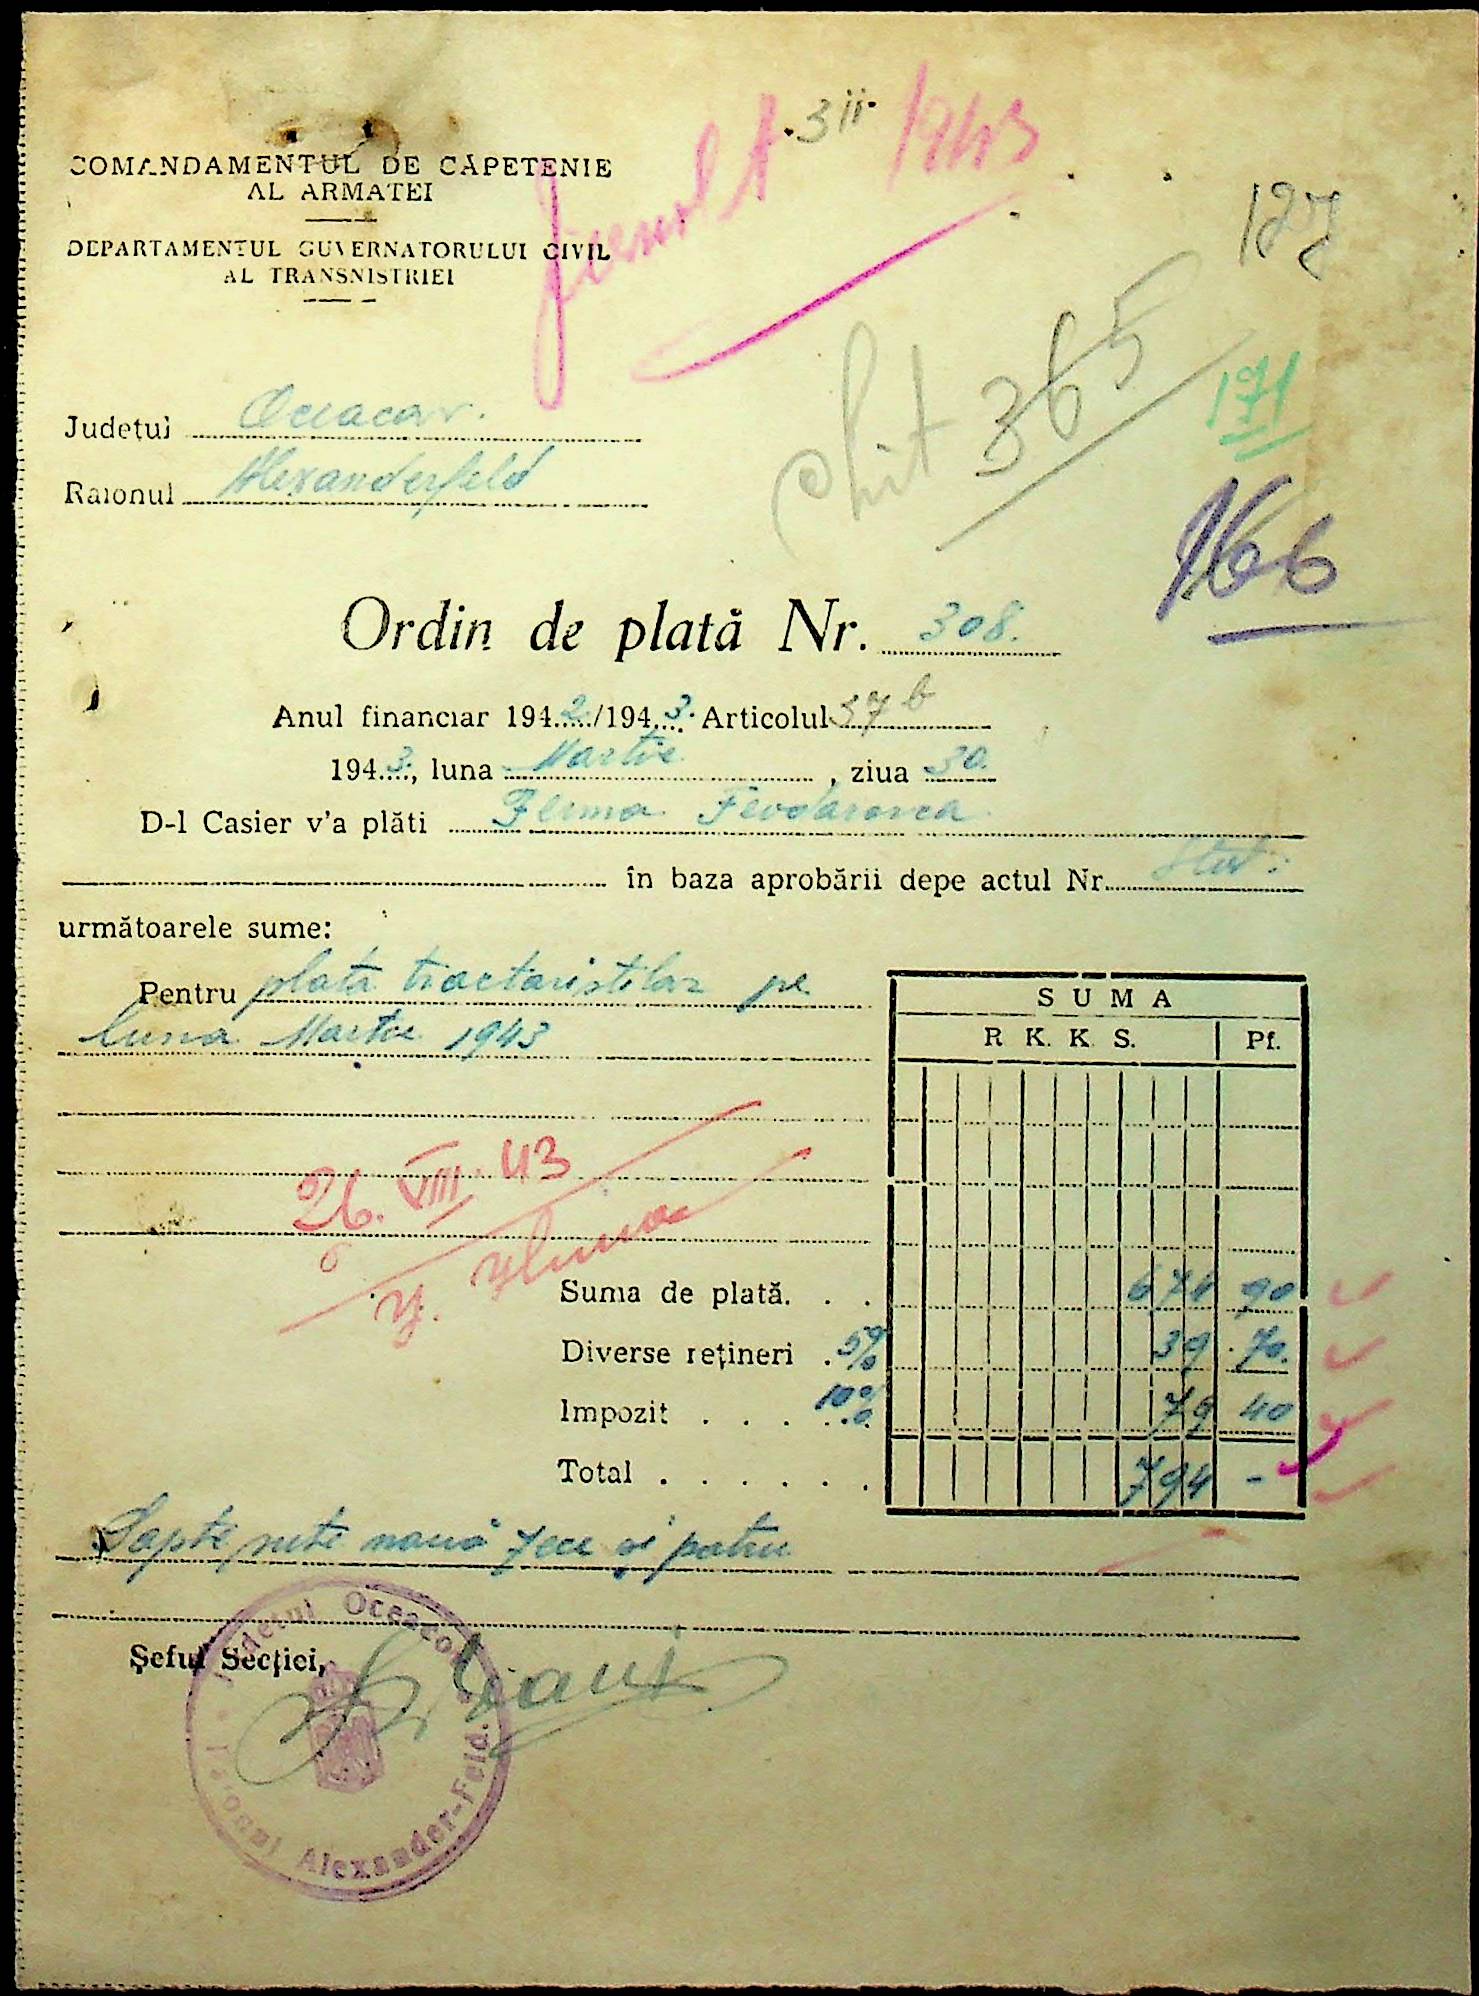 COMANDAMENTUL DE CĂPETENIE
AL ARMATEI
DEPARTAMENTUL GUVERNATORULUI CIVIL
AL TRANSNISTRIEI
1943
127
Chit 365
171
166
Județul Oceacov.
Raionul Alexanderfeld
Ordin de plată Nr. 308.
Anul financiar 1942/1943. Articolul 37 b
1943., luna Martie , ziua 30.
D-l Casier v'a plăti Feodarovca
în baza aprobării depe actul Nr. Stat:
următoarele sume:
Pentru plata tractoriștilor pe
luna Martie 1943
SUMA
R K. K S. Pf.
26. VIII. 43
Suma de plată. . . 674 90
Diverse rețineri . 5% 39 . 70.
Impozit . . . 10% 79 40
Total . . . . . . 794 -
Șapte sute nouă zece și patru
Șeful Secției,
Județul Oceacov
Raionul Alexander-Feld.